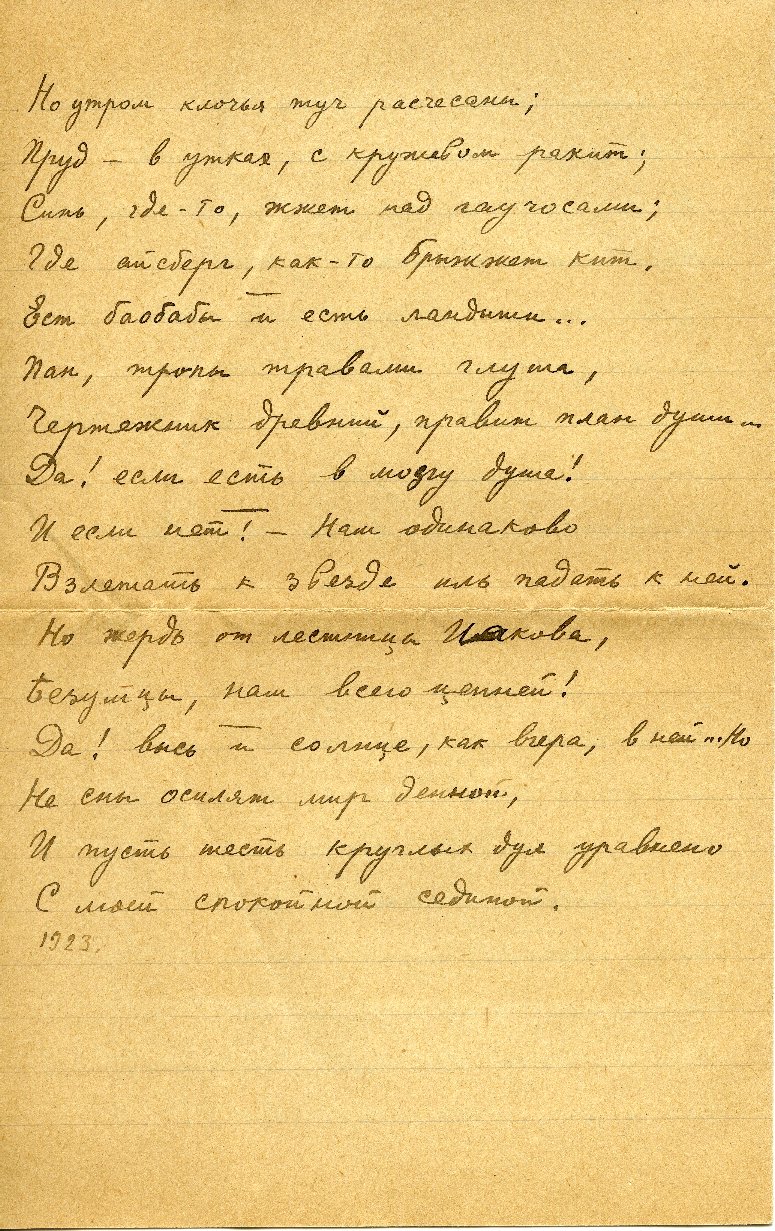 Но утром клочья туч расчесаны;
Пруд – в утках, с кружевом ракит;
Синь, где-то, жжет над гаучосами;
Где айсберг, как-то брыжжет кит.
Ест баобабы и есть ландыши...
Пан, тропы травами глуша,
Чертежник древний, правит план души...
Да! если есть в мозгу душа!
И если нет! – Нам одинаково
Взлетать к звезде иль падать к ней.
Но жердь от лестницы Иакова,
Безумцы, нам всего ценней!
Да! высь и солнце, как вчера, в ней... Но
Не сны осилят мир денной,
И пусть шесть круглых дул уравнено
С моей спокойной сединой.
1923.